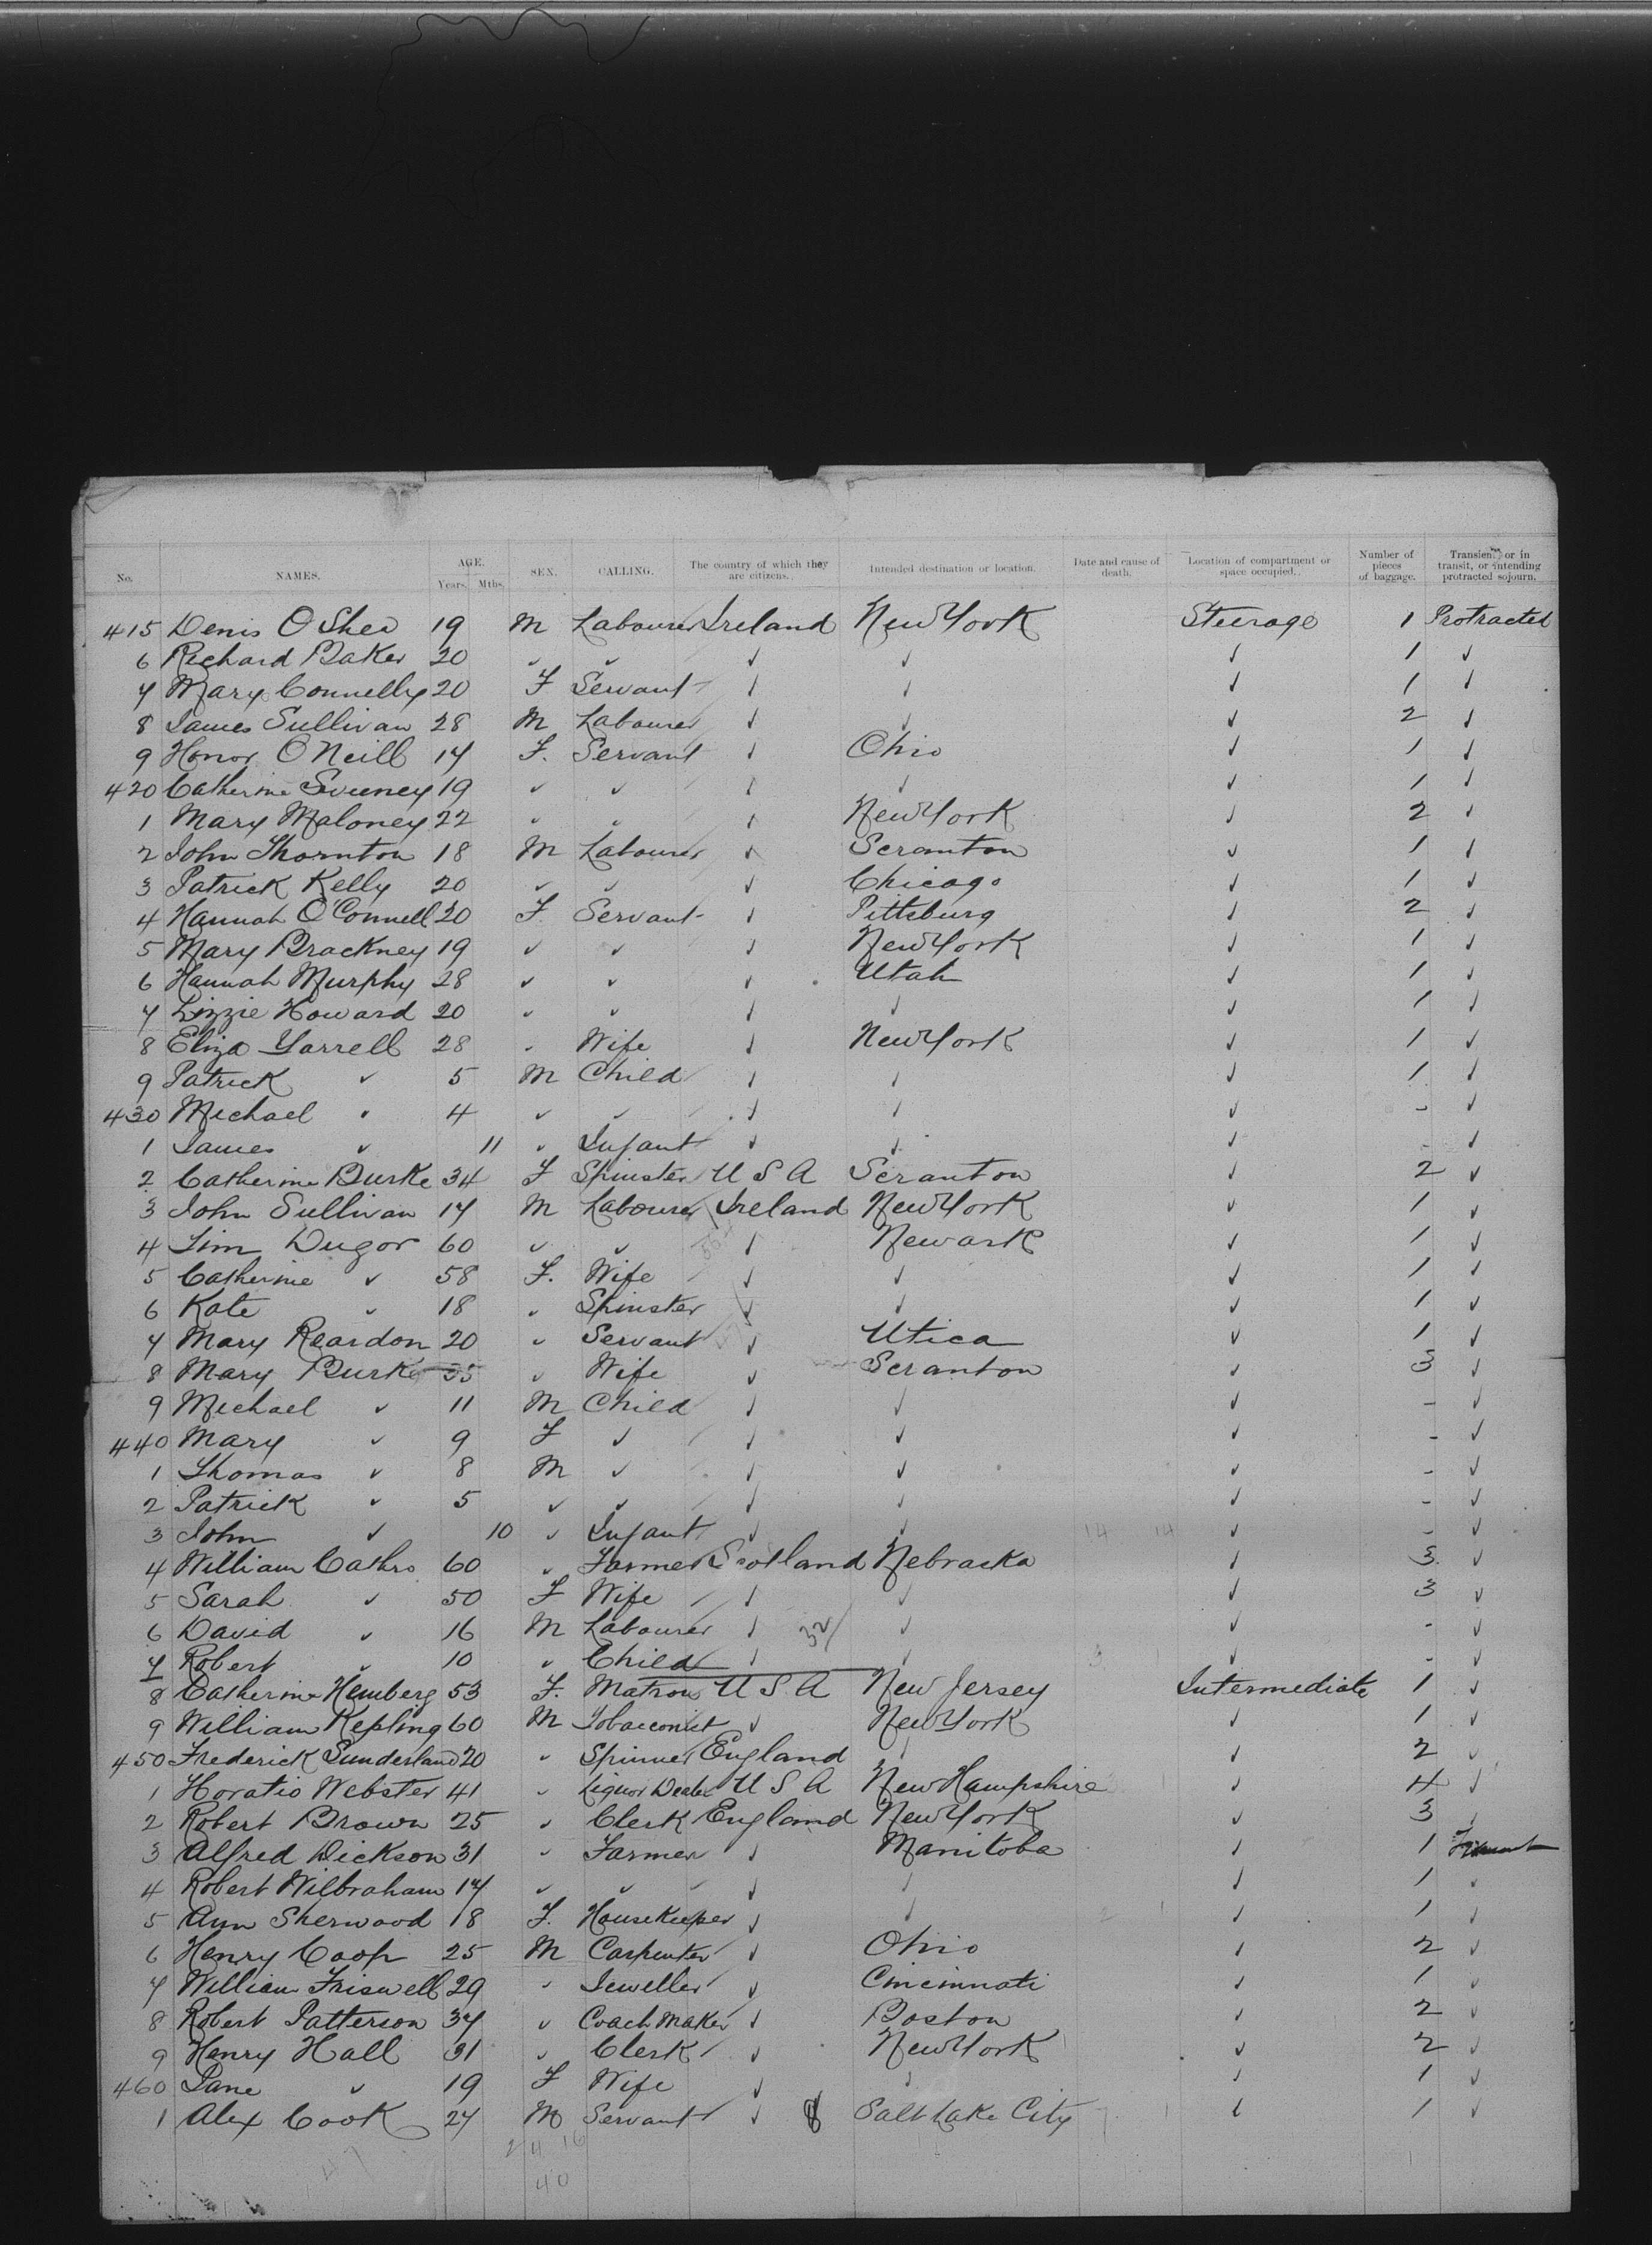 No. NAMES. AGE. Years. Mths. SEX. CALLING. The country of which they are citizens. Intended destination or location. Date and cause of death. Location of compartment or space occupied. Number of pieces of baggage. Transient or in transit, or intending protracted sojourn.
415 Denis O Shea 19 M Labourer Ireland New York Steerage 1 Protracted
6 Richard Baker 20 ✓ ✓ ✓ ✓ ✓ 1 ✓
7 Mary Connelly 20 F Servant ✓ ✓ ✓ 1 ✓
8 James Sullivan 28 M Labourer ✓ ✓ ✓ 2 ✓
9 Honor O Neill 17 F. Servant ✓ Ohio ✓ 1 ✓
420 Catherine Sweeney 19 ✓ ✓ ✓ ✓ ✓ 1 ✓
1 Mary Maloney 22 ✓ ✓ ✓ New York ✓ 2 ✓
2 John Thornton 18 M Labourer ✓ Scranton ✓ 1 ✓
3 Patrick Kelly 20 ✓ ✓ ✓ Chicago ✓ 1 ✓
4 Hannah O'Connell 20 F. Servant ✓ Pittsburg ✓ 2 ✓
5 Mary Brackney 19 ✓ ✓ ✓ New York ✓ 1 ✓
6 Hannah Murphy 28 ✓ ✓ ✓ Utah ✓ 1 ✓
7 Lizzie Howard 20 ✓ ✓ ✓ ✓ ✓ 1 ✓
8 Eliza Yarrell 28 ✓ Wife ✓ New York ✓ 1 ✓
9 Patrick ✓ 5 M Child ✓ ✓ ✓ 1 ✓
430 Michael ✓ 4 ✓ ✓ ✓ ✓ ✓ - ✓
1 James ✓ 11 ✓ Infant ✓ ✓ ✓ - ✓
2 Catherine Burke 34 F Spinster U S A Scranton ✓ 2 ✓
3 John Sullivan 17 M Labourer Ireland New York ✓ 1 ✓
4 Tim Dugor 60 ✓ ✓ ✓ Newark ✓ 1 ✓
5 Catherine ✓ 58 F. Wife ✓ ✓ ✓ 1 ✓
6 Kate ✓ 18 ✓ Spinster ✓ ✓ ✓ 1 ✓
7 Mary Reardon 20 ✓ Servant ✓ Utica ✓ 1 ✓
8 Mary Burke 35 ✓ Wife ✓ Scranton ✓ 3 ✓
9 Michael ✓ 11 M Child ✓ ✓ ✓ - ✓
440 Mary ✓ 9 F ✓ ✓ ✓ ✓ - ✓
1 Thomas ✓ 8 M ✓ ✓ ✓ ✓ - ✓
2 Patrick ✓ 5 ✓ ✓ ✓ ✓ ✓ - ✓
3 John ✓ 10 ✓ Infant ✓ ✓ 14 14 ✓ - ✓
4 William Cathro 60 ✓ Farmer Scotland Nebraska ✓ 3 ✓
5 Sarah ✓ 50 F Wife ✓ ✓ ✓ 3 ✓
6 David ✓ 16 M Labourer ✓ ✓ ✓ - ✓
7 Robert ✓ 10 ✓ Child ✓ ✓ 3 ✓ - ✓
8 Catherine Hemberg 53 F. Matron U S A New Jersey Intermediate 1 ✓
9 William Kepling 60 M Tobacconist ✓ New York ✓ 1 ✓
450 Frederick Sunderland 20 ✓ Spinner England ✓ ✓ 2 ✓
1 Horatio Webster 41 ✓ Liquor Dealer U S A New Hampshire ✓ 4 ✓
2 Robert Brown 25 ✓ Clerk England New York ✓ 3 ✓
3 Alfred Dickson 31 ✓ Farmer ✓ Manitoba ✓ 1
4 Robert Wilbraham 17 ✓ ✓ ✓ ✓ ✓ 1 ✓
5 Ann Sherwood 18 F. Housekeeper ✓ ✓ ✓ 1 ✓
6 Henry Coop 25 M Carpenter ✓ Ohio ✓ 2 ✓
7 William Friswell 29 ✓ Jeweller ✓ Cincinnati ✓ 1 ✓
8 Robert Patterson 37 ✓ Coach Maker ✓ Boston ✓ 2 ✓
9 Henry Hall 31 ✓ Clerk ✓ New York ✓ 2 ✓
460 Jane ✓ 19 F Wife ✓ ✓ ✓ 1 ✓
1 Alex Cook 27 M Servant ✓ 8 Salt Lake City ✓ 1 ✓
24 16
40